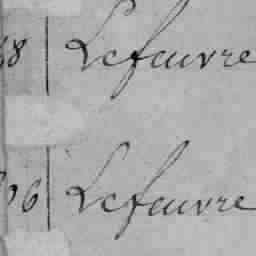 8 Lefeuvre
06 Lefeuvre